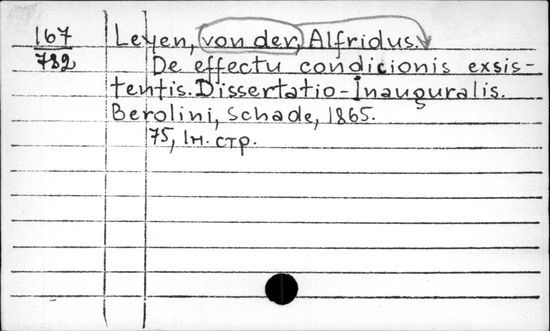 167 Leyen, von der, Alfridus.
782 De effectu condicionis exsis-
tentis. Dissertatio-Inauguralis.
Berolini, Schade, 1865.
75, 1н. стр.